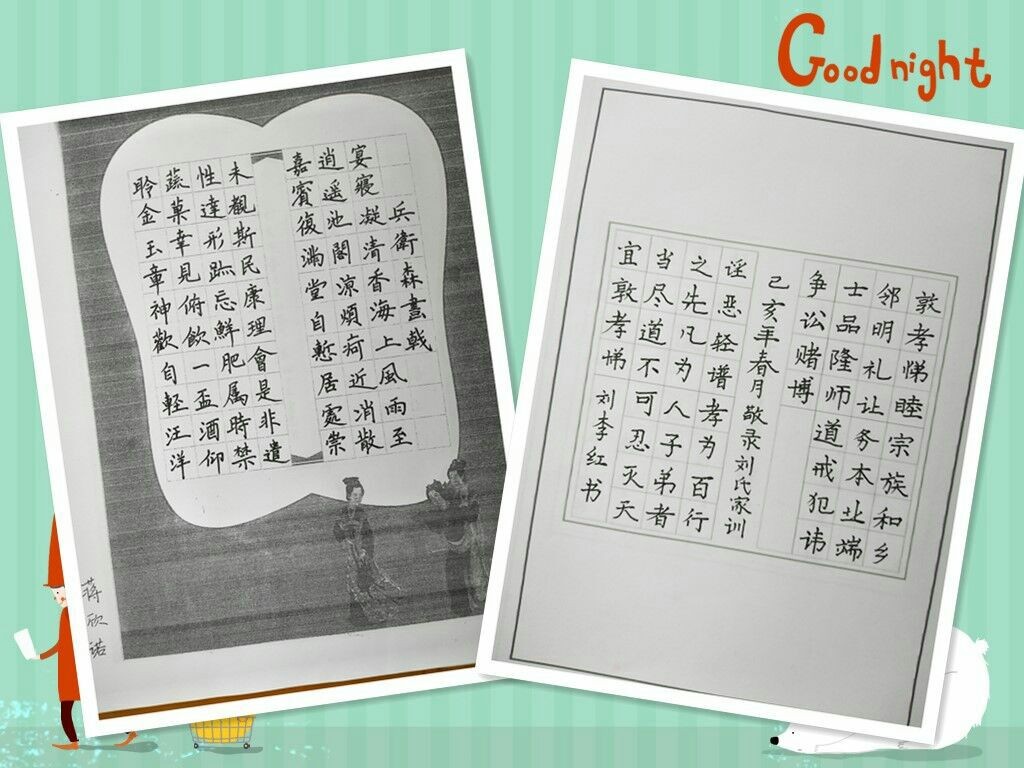 Good night
兵衛森畫戟
宴寢凝清香海上風雨至
逍遥池閣凉煩疴近消散
嘉賓復滿堂自慙居處崇
未觀斯民康理會是非遣
性達形跡忌鮮肥属時禁
蔬菓幸見俯飲一盃酒仰
聆金玉章神歡自輕汪洋
蒋欣诺
敦孝悌睦宗族和乡
邻明礼让务本业端
士品隆师道戒犯讳
争讼赌博
己亥年春月敬录刘氏家训
诬恶轻谱孝为百行
之先凡为人子弟者
当尽道不可忍灭天
宜敦孝悌 刘李红书